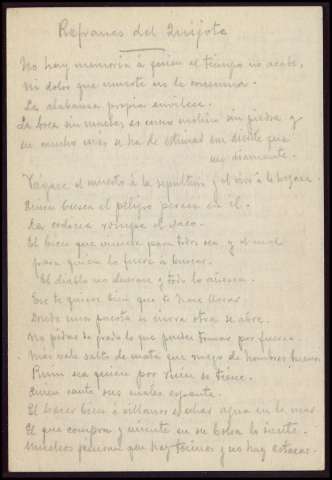 Refranes del Quijote
No hay memoria a quien el tiempo no acabe,
Ni dolor que muerte no le consuma.
La alabanza propia envilece.
La boca sin muelas es como molino sin piedra y
en mucho mas se ha de estimar un diente que
un diamante.
Vayase el muerto á la sepultura y el vivo á la hogaza.
Quien busca el peligro perece en él.
La codicia rompe el saco.
El bien que viniere para todos sea, y el mal
para quien lo fuere a buscar.
El diablo no duerme y todo lo añasca.
Ese te quiere bien que te hace llorar.
Donde una puerta se cierra otra se abre.
No pidas de grado lo que puedes tomar por fuerza.
Mas vale salto de mata que ruego de hombres buenos.
Ruin sea quien por ruin se tiene.
Quien canta sus males espanta.
El hacer bien á villanos es echar agua en la mar.
El que compra y miente en su bolsa lo siente.
Muchos piensan que hay tocinos y no hay estacas.